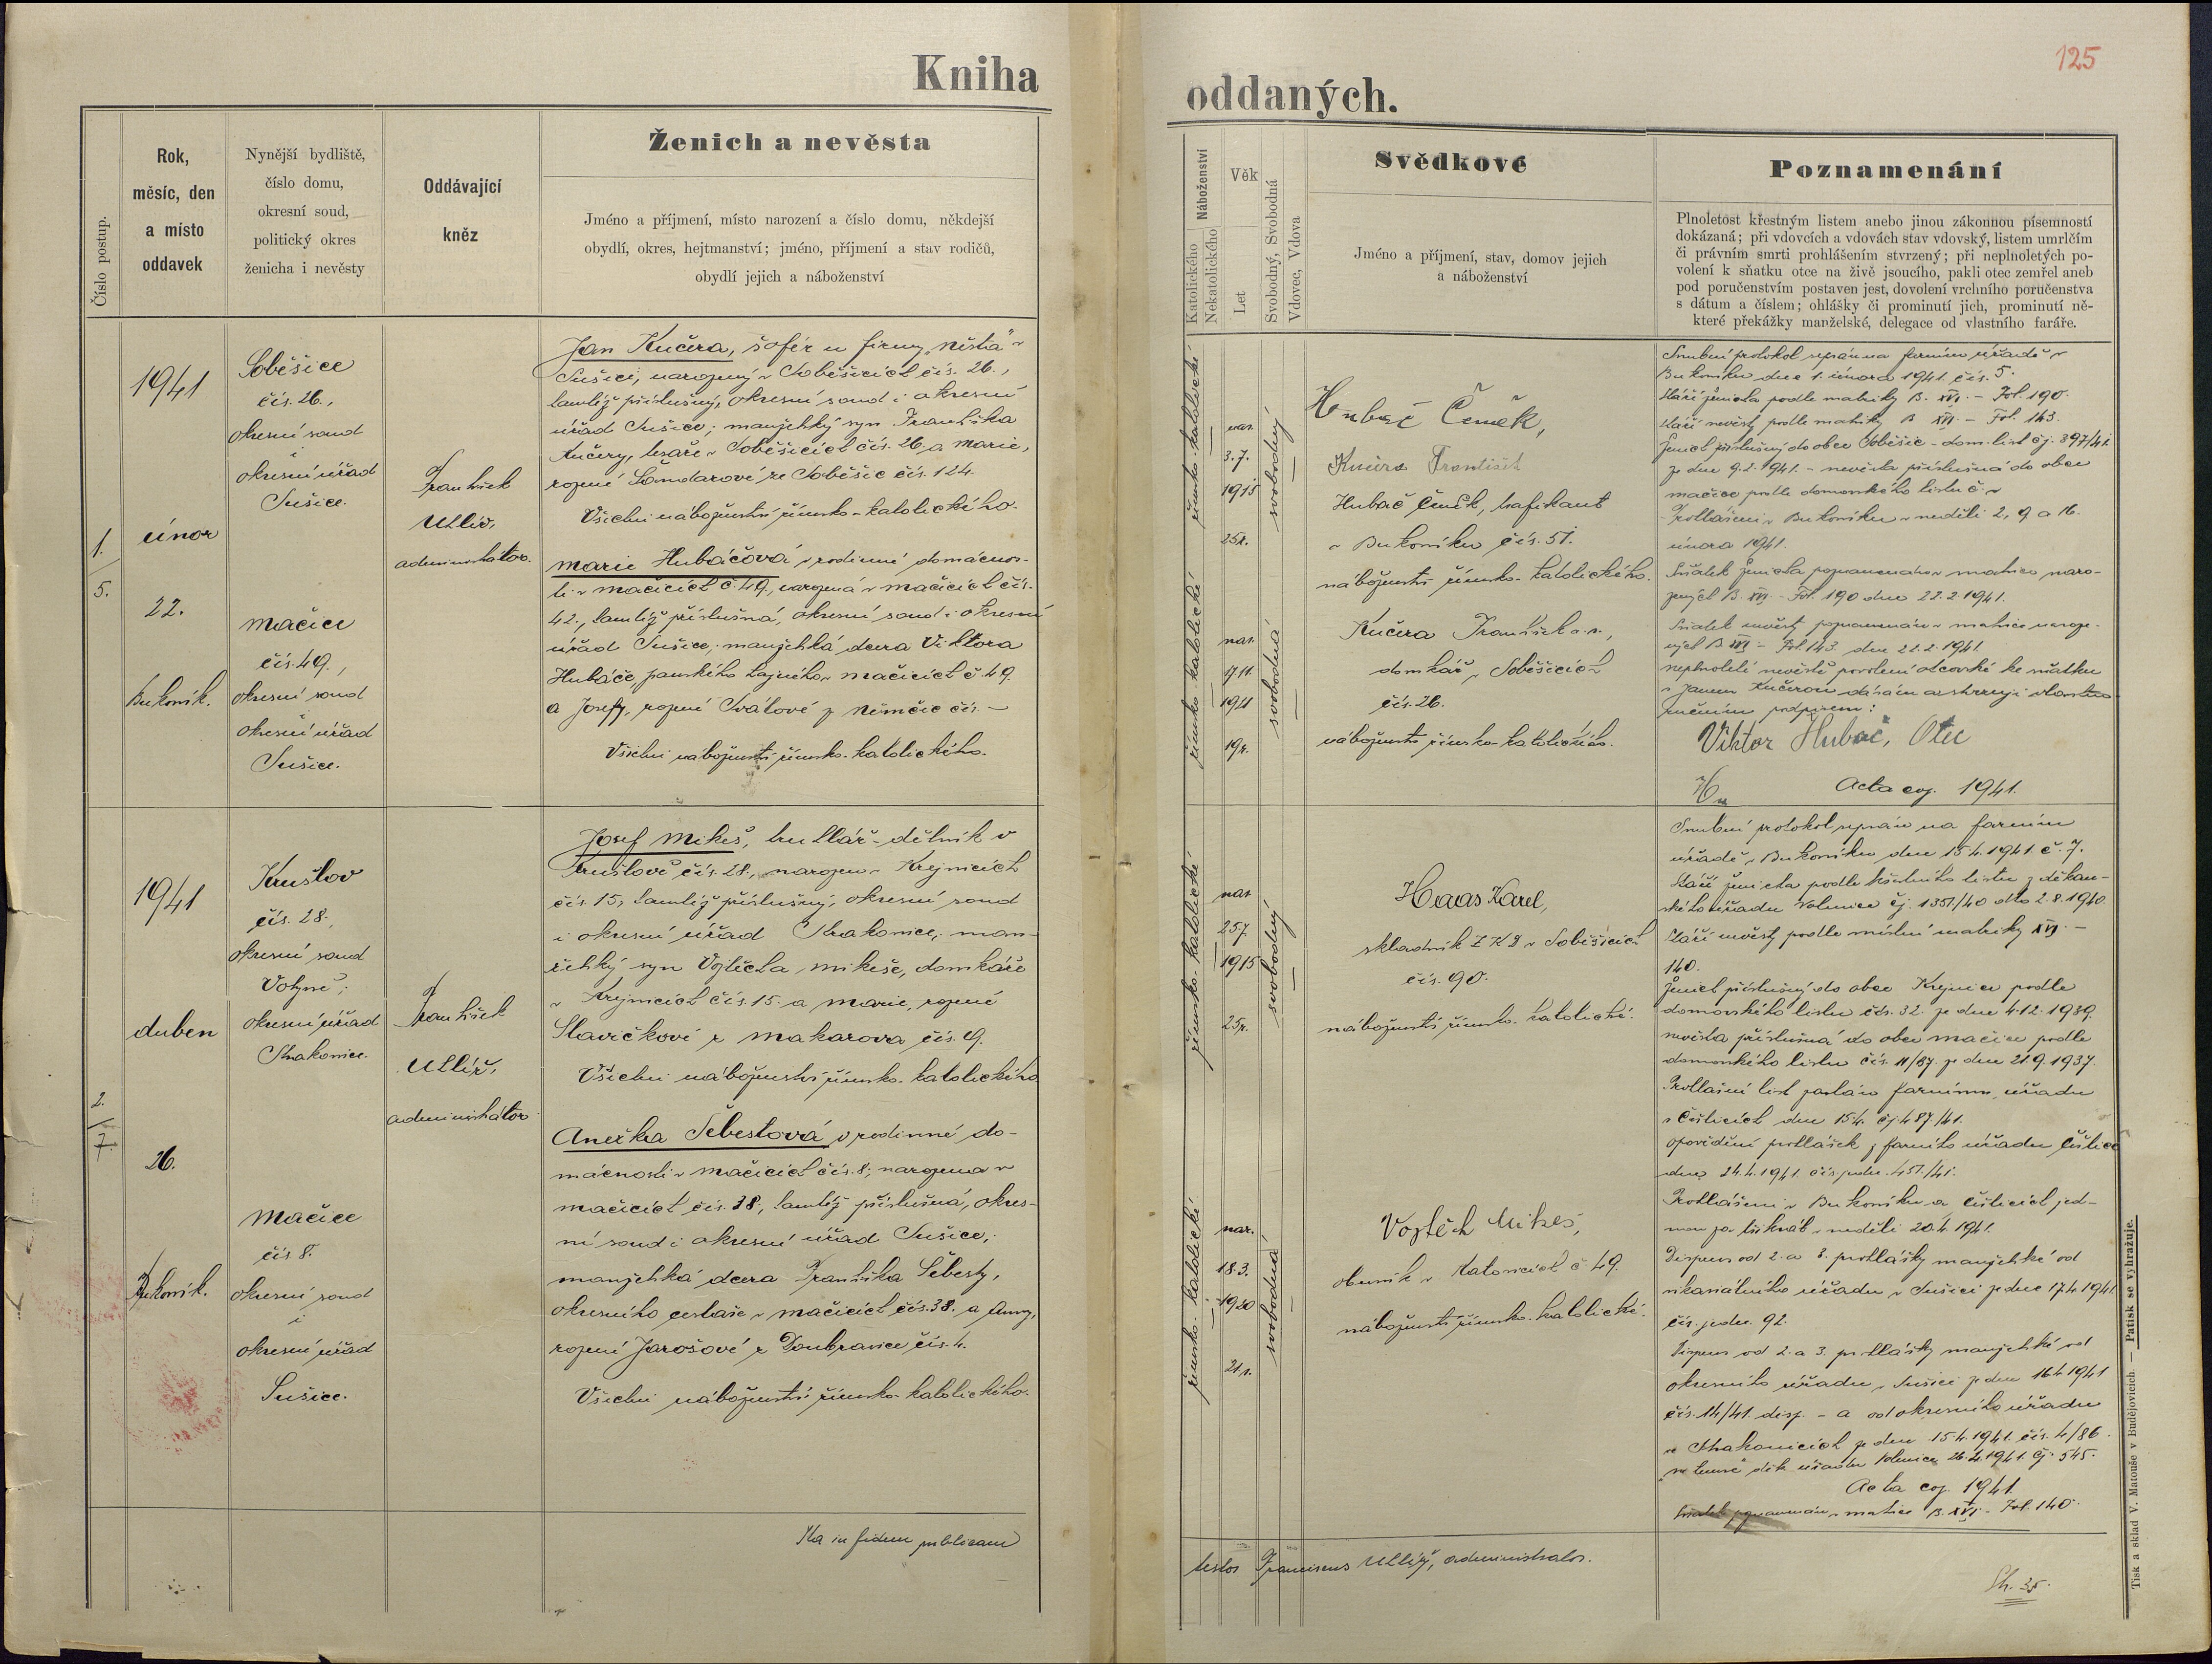 Kniha
oddaných.
125
Číslo postup.
Rok,
měsíc, den
a místo
oddavek
Nynější bydliště,
číslo domu,
okresní soud,
politický okres
ženicha i nevěsty
Oddávající
kněz
Ženich a nevěsta
Jméno a příjmení, místo narození a číslo domu, někdejší
obydlí, okres, hejtmanství; jméno, příjmení a stav rodičů,
obydlí jejich a náboženství
Náboženství
Katolického
Nekatolického
Věk
Let
Svobodný, Svobodná
Vdovec, Vdova
Svědkové
Jméno a příjmení, stav, domov jejich
a náboženství
Poznamenání
Plnoletost křestným listem anebo jinou zákonnou písemností
dokázaná; při vdovcích a vdovách stav vdovský, listem umrlčím
či právním smrti prohlášením stvrzený; při neplnoletých po-
volení k sňatku otce na živě jsoucího, pakli otec zemřel aneb
pod poručenstvím postaven jest, dovolení vrchního poručenstva
s dátum a číslem; ohlášky či prominutí jich, prominutí ně-
které překážky manželské, delegace od vlastního faráře.
1.
5.
1941
únor
22.
Bukovník.
Soběšice
čís. 26.,
okresní soud
i
okresní úřad
Sušice.
Mačice
čís. 49.,
okresní soud
okresní úřad
Sušice.
František
Uhlíř,
administrátor.
Jan Kučera, šofér u firmy "Něsta" v
Sušici, narozený v Soběšicích čís. 26.,
tamtéž příslušný, okresní soud i okresní
úřad Sušice; manželský syn Františka
Kučery, tesaře v Soběšicích čís. 26. a Marie,
rozené Šondarové ze Soběšic čís. 124.
Všichni náboženství římsko-katolického.
Marie Hubáčová v rodinné domácnos-
ti v Mačicích č. 49., narozená v Mačicích čís.
42., tamtéž příslušná, okresní soud i okresní
úřad Sušice, manželská dcera Viktora
Hubáče, panského hajného v Mačicích č. 49.
a Josefy, rozené Svátové z Němčic čís. –
Všichni náboženství římsko-katolického.
římsko-katolické
nar.
3.7.
1915
25 r.
svobodný
římsko-katolické
nar.
17.11.
1921
19 r.
svobodná
Hubač Čeněk,
Kučera František
Hubač Čeněk, trafikant
v Bukovníku čís. 51.
náboženství římsko-katolického.
Kučera František
domkář v Soběšicích
čís. 26.
náboženství římsko-katolického.
Snubní protokol sepsán na farním úřadě v
Bukovníku dne 1. února 1941. čís. 5.
Stáří ženicha podle matriky B. XVI. – Fol. 190.
Stáří nevěsty podle matriky B XVI. – Fol. 143.
Ženich příslušný do obce Soběšic – dom. list čj. 397/41.
ze dne 9.2.1941. – nevěsta příslušná do obce
Mačice podle domovského listu č. –
Prohlášeni v Bukovníku v neděli 2., 9. a 16.
února 1941.
Sňatek ženicha poznamenán v matrice naro-
zených B. XVI. – Fol. 190 dne 22.2.1941.
Sňatek nevěsty poznamenán v matrice naroze-
ných B XVI – Fol. 143. dne 22.2.1941.
Neplnoleté nevěstě povolení otcovské ke sňatku
s Janem Kučerou dávám a stvrzuji vlastno-
ručním podpisem:
Viktor Hubač, Otec
Acta cop. 1941.
2.
7.
1941
duben
26.
Bukovník.
Krušlov
čís. 28.,
okresní soud
Volyně;
okresní úřad
Strakonice.
Mačice
čís 8.
okresní soud
i
okresní úřad
Sušice.
František
Uhlíř,
administrátor.
Josef Mikeš, truhlář-dělník v
Krušlově čís. 28., narozen v Krejnicích
čís. 15, tamtéž příslušný, okresní soud
i okresní úřad Strakonice, man-
želský syn Vojtěcha Mikeše, domkáře
v Krejnicích čís. 15. a Marie, rozené
Slavíčkové z Makarova čís. 9.
Všichni náboženství římsko-katolického
Anežka Šebestová v rodinné do-
mácnosti v Mačicích čís. 8., narozena v
Mačicích čís. 38, tamtéž příslušná, okres-
ní soud i okresní úřad Sušice;
manželská dcera Františka Šebesty,
okresního cestaře v Mačicích čís. 38. a Anny,
rozené Jarošové z Doubravice čís. 4.
Všichni náboženství římsko-katolického.
římsko-katolické
nar.
25.7.
1915
25 r.
svobodný
římsko-katolické
nar.
18.3.
1920
21 r.
svobodná
Haas Karel,
skladník v Soběšicích
čís. 90.
náboženství římsko-katolické.
Vojtěch Mikeš,
obuvník v Katovicích č 49.
náboženství římsko-katolické.
Snubní protokol sepsán na farním
úřadě v Bukovníku dne 15.4.1941. č. 7.
Stáří ženicha podle křestního listu z děkan-
ského úřadu Volenice čj. 1351/40 dto 2.8.1940.
Stáří nevěsty podle místní matriky XVI. –
140.
Ženich příslušný do obce Krejnice podle
domovského listu čís. 32. ze dne 4.12.1939.
nevěsta příslušná do obce Mačice podle
domovského listu čís. 11/87. ze dne 21.9.1937.
Prohlašní list zaslán farnímu úřadu
v Češticích dne 15.4. čj. 487/41.
opovědění prohlášek z farního úřadu Čestice
dne 24.4.1941. čís. jedn. 451./41.
Prohlášeni v Bukovníku a Češticích jed-
nou za třikrát v neděli 20.4.1941.
Dispens od 2. a 3. prohlášky manželské od
vikariátního úřadu v Sušici ze dne 17.4.1941
čís. jedn. 92.
Dispens od 2. a 3. prohlášky manželské od
okresního úřadu v Sušici ze dne 16.4.1941
čís. 14/41. disp. – a od okresního úřadu
ve Strakonicích ze dne 15.4.1941. čís. 4/86.
děk. úřadu Volenice 26.4.1941. čj. 545.
Acta cop. 1941.
Sňatek poznamenán v matrice B. XVI. – Fol. 140.
Ita in fidem publicam
testor Franciscus Uhlíř, administrator.